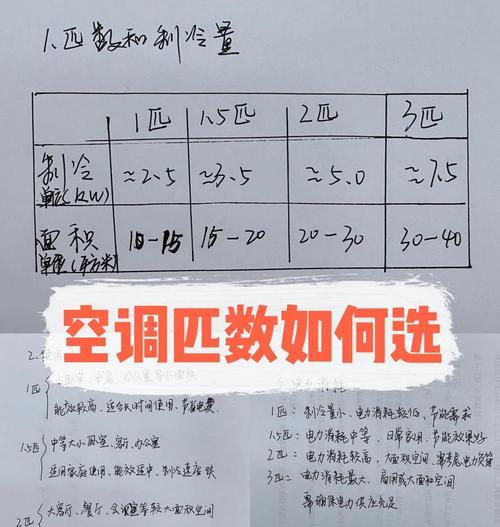 1.匹数和制冷量
1匹 1.5匹 2匹 3匹
制冷 ≈2.5 ≈3.5 ≈5.0 ≈7.5
单位(KW)
面积 10-15 15-20 20-30 30-40
单位(平方米)
空调匹数如何选
2.使用
1匹 书房、办公室等小面积
能效较高、适合长时间使用、节省电费
1.5匹 中等大小卧室、客厅、办公室
适用家庭使用、能效适中、制冷速度快
2匹 大客厅、餐厅、会议室等较大面积空间
电力消耗
1匹：制冷量小、电力消耗较低、节能需求
1.5匹：电力消耗中等、日常家用、节能效果好
2匹：电力消耗较高、大面积空间、需考虑电力负荷
3匹：电力消耗最大、商用或大面积空间
需确保电力供应充足